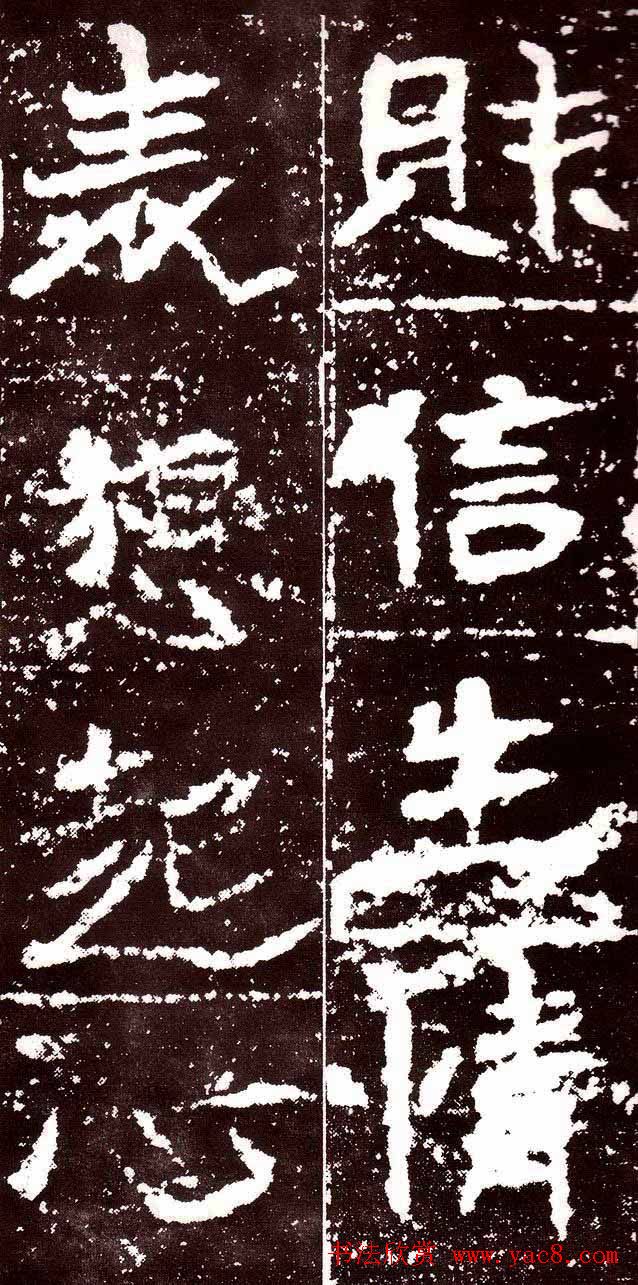 信生情
表想起心
书法欣赏 www.yac8.com